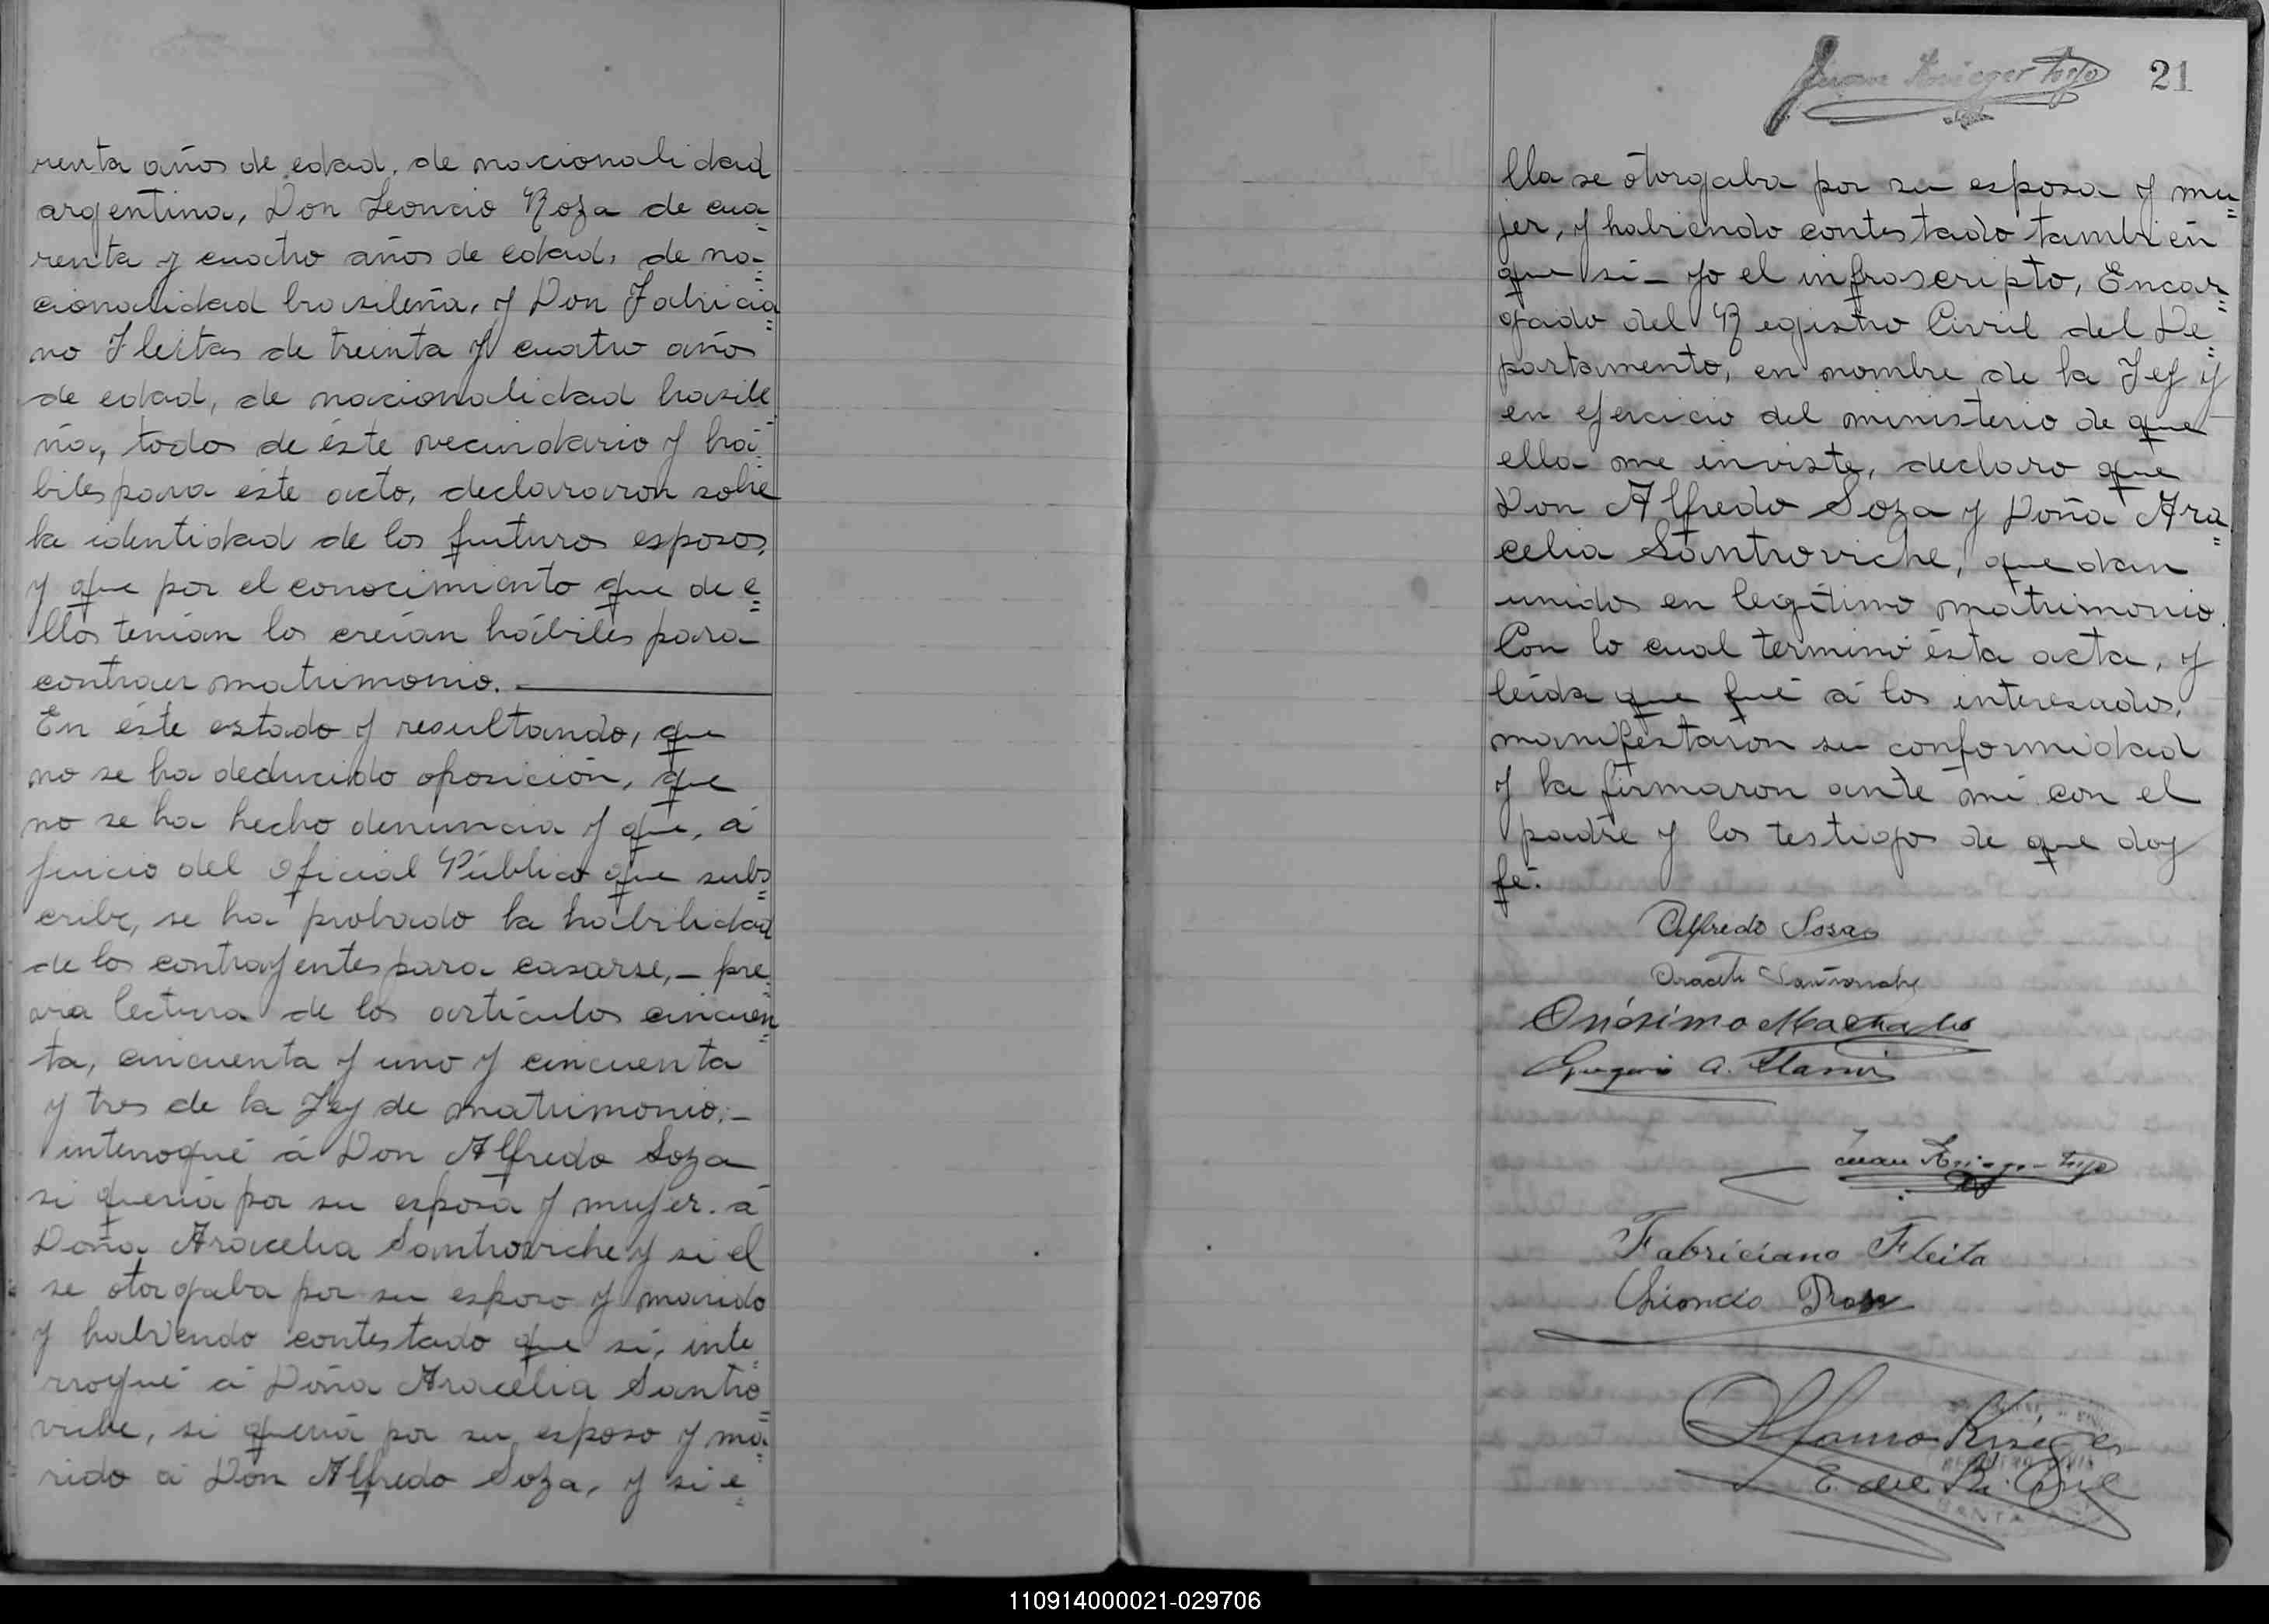 renta años de edad, de nacionalidad
argentina, Don Leoncio Roza de cua=
renta y cuatro años de edad, de na=
cionalidad brasileña, y Don Fabricia=
no Fleitas de treinta y cuatro años
de edad, de nacionalidad brasile=
ña, todos de éste vecindario y há=
biles para éste acto, declararon sobre
la identidad de los futuros esposos,
y que por el conocimiento que de e=
llos tenían los creían hábiles para
contraer matrimonio.
En éste estado y resultando, que
no se ha deducido oposición, que
no se ha hecho denuncia y que, á
juicio del Oficial Público que subs=
cribe, se ha probado la habilidad
de los contrayentes para casarse, - pre=
via lectura de los artículos cincuen=
ta, cincuenta y uno y cincuenta
y tres de la Ley de matrimonio. -
interrogué á Don Alfredo Soza
si quería por su esposa y mujer. á
Doña Aracelia Santroviche y si el
se otorgaba por su esposo y marido
y habiendo contestado que sí, inte=
rrogué á Doña Aracelia Santro=
viche, si quería por su esposo y ma=
rido á Don Alfredo Soza, y si e=
Juan Krieger hijo
21
lla se otorgaba por su esposa y mu=
jer, y habiendo contestado también
que sí - yo el infrascripto, Encar=
gado del Registro Civil del De=
partamento, en nombre de la Ley y
en ejercicio del ministerio de que
ella me inviste, declaro que
Don Alfredo Soza y Doña Ara=
celia Santroviche, quedan
unidos en legítimo matrimonio.
Con lo cual terminó ésta acta, y
leída que fué á los interesados,
manifestaron su conformidad
y la firmaron ante mí con el
padre y los testigos de que doy
fé.
Alfredo Sosa
Araceli
Onósimo Machado
A.
Juan Krieger hijo
Fabriciano Fleita
Krieger
E. del R. Civil
REGISTRO CIVIL
110914000021-029706